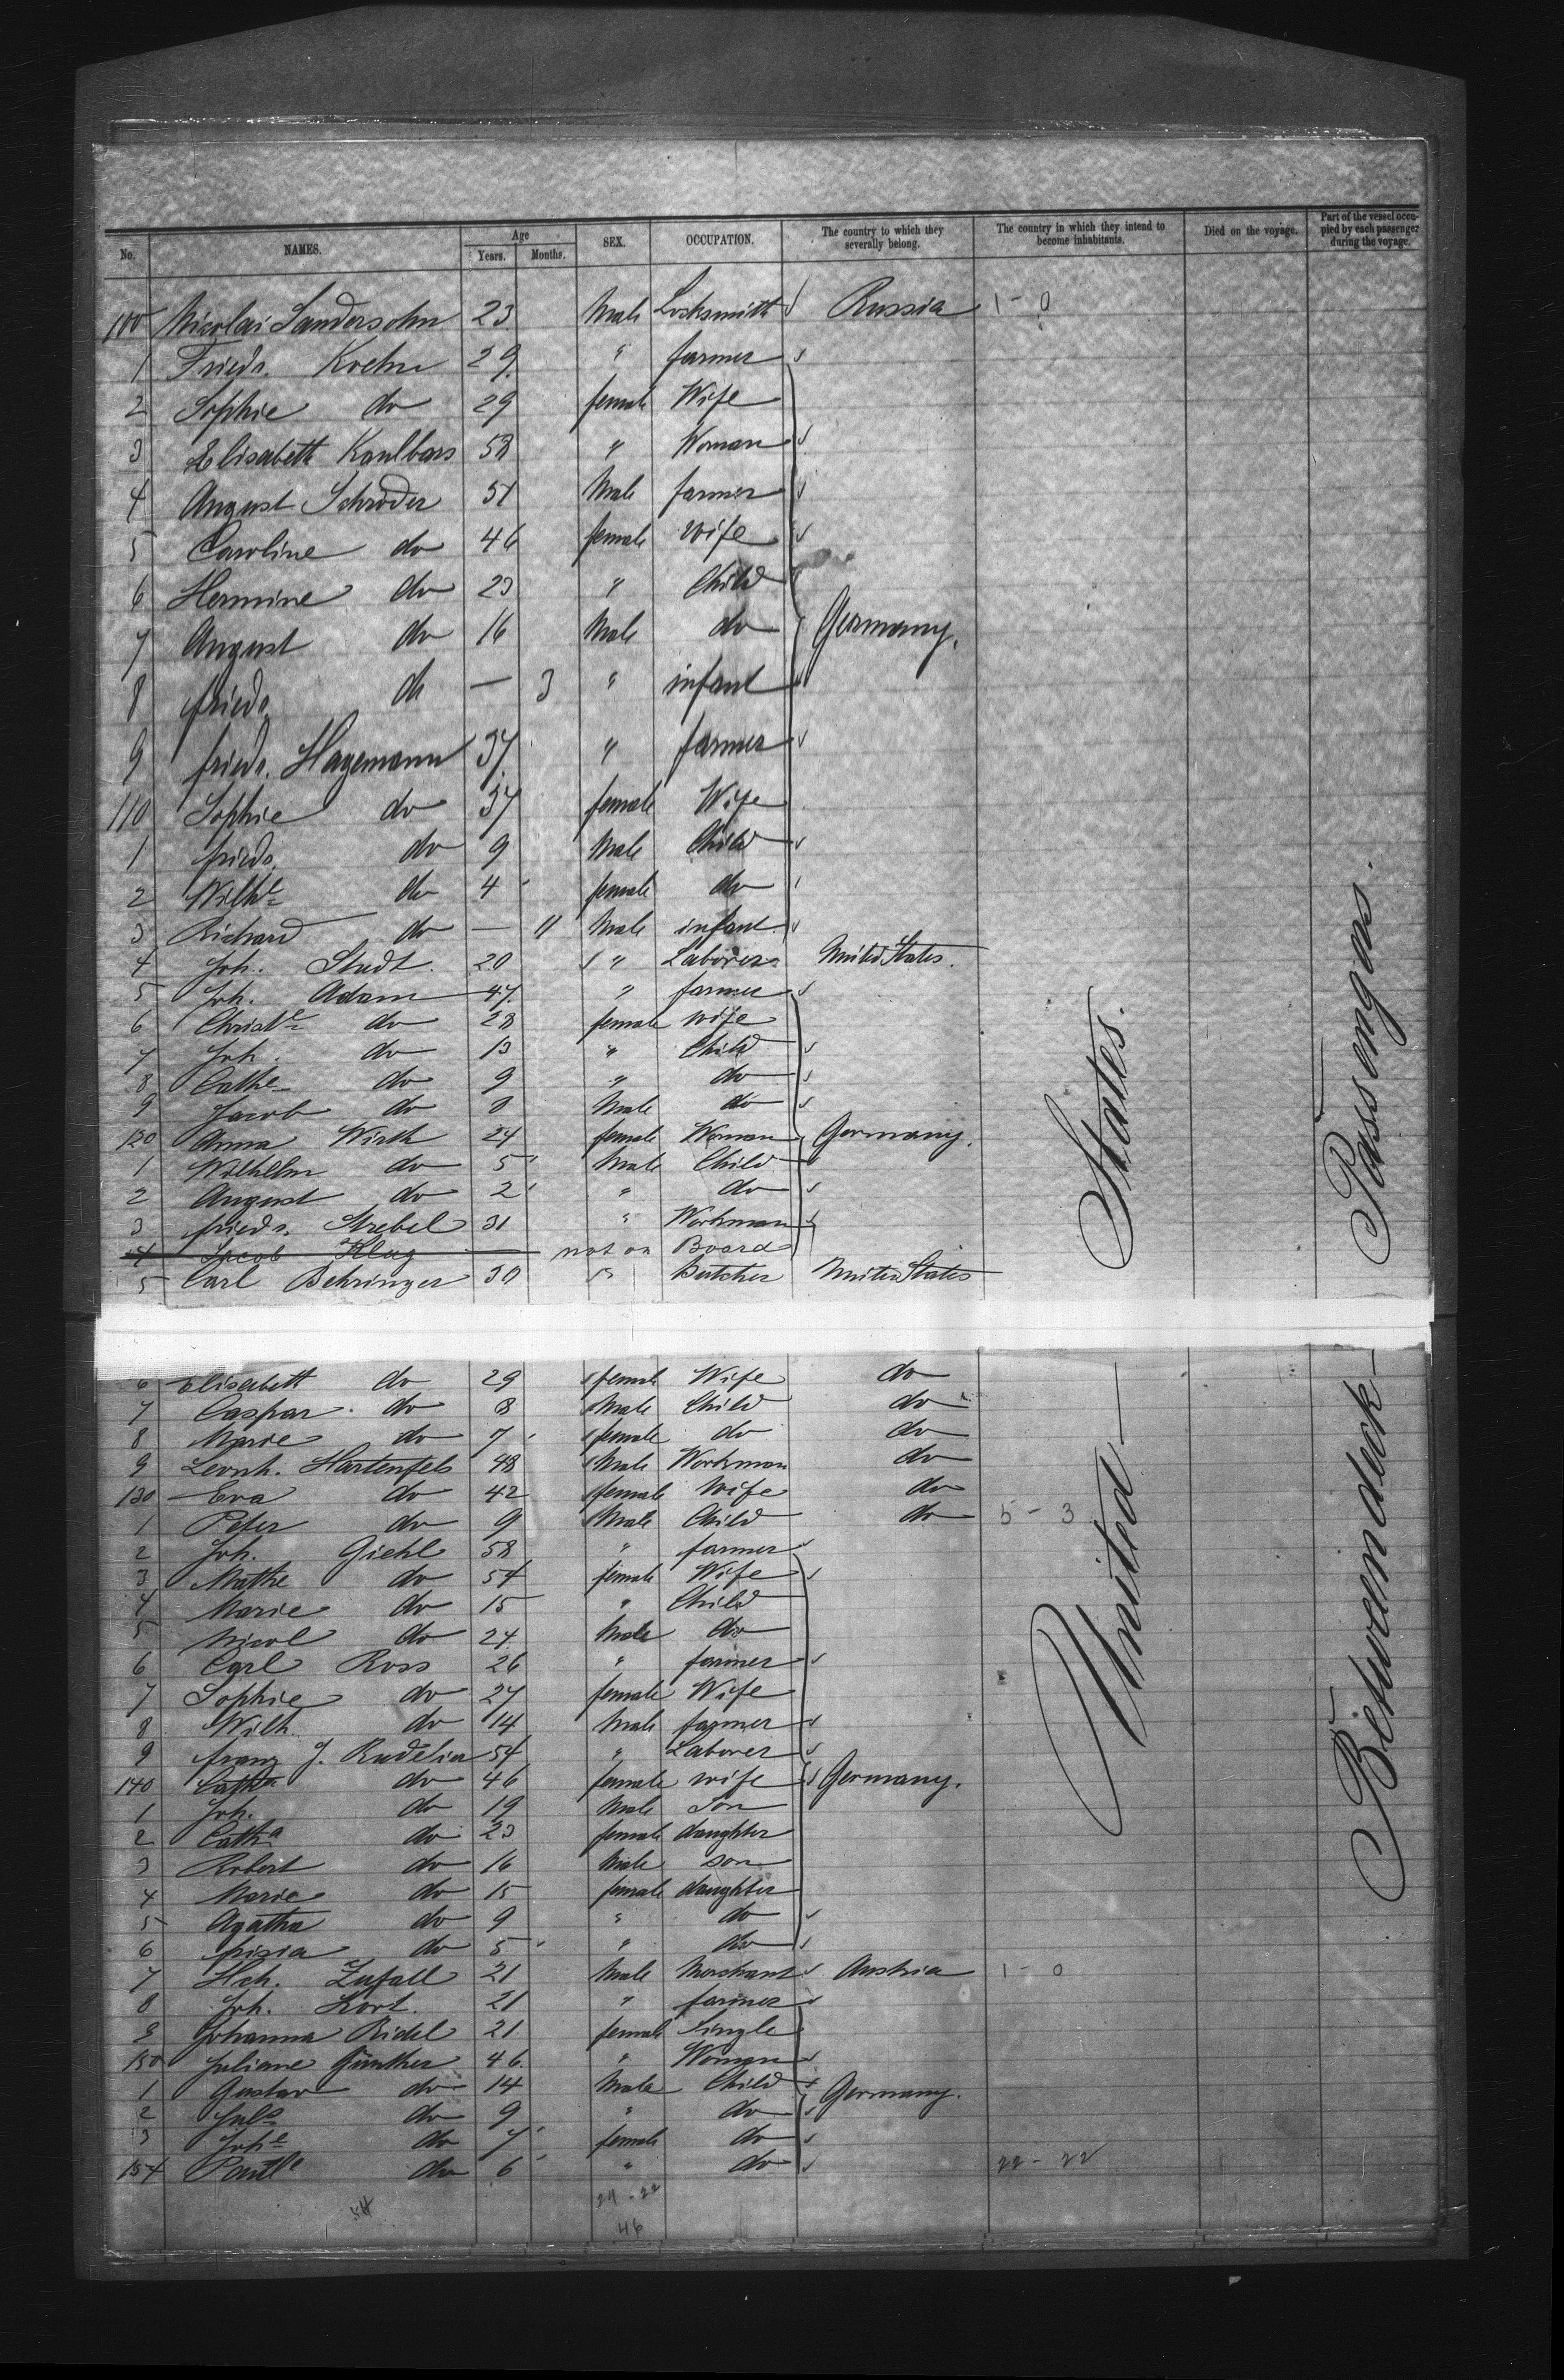 No. NAMES. Age Years. Months. SEX. OCCUPATION. The country to which they severally belong. The country in which they intend to become inhabitants. Died on the voyage. Part of the vessel occupied by each passenger during the voyage.
100 Nicolai Sandersohn 23 Male Locksmith Russia 1-0
1 Friedr. Koehn 29 " farmer
2 Sophie do 29 female Wife
3 Elisabeth Kaulbars 58 " Woman
4 August Schröder 51 Male farmer
5 Caroline do 46 female wife
6 Hermine do 23 " Child
7 August do 16 Male do Germany.
8 friedr. do — 3 " infant
9 friedr. Hagemann 37 " farmer
110 Sophie do 37 female Wife
1 friedr. do 9 Male Child
2 Wilhe do 4 female do
3 Richard do — 11 Male infant
4 Joh. Studt. 20 " Laborer United States.
5 Joh. Adam 47 " farmer
6 Christe do 28 female wife
7 Joh. do 13 " Child
8 Cathe do 9 " do
9 Jacob do 8 Male do
120 Anna Wirth 24 female Woman Germany.
1 Wilhelm do 5 Male Child
2 August do 2 " do
3 friedr. Strebel 31 " Workman
4 Jacob Klug — not on Board
5 Carl Behringer 30 " Butcher United States
6 Elisabeth do 29 female Wife do
7 Caspar do 8 Male Child do
8 Marie do 7 female do do
9 Leonh. Hartenfels 48 Male Workman do
130 Eva do 42 female Wife do
1 Peter do 9 Male Child do 5-3
2 Joh. Giehl 58 " farmer
3 Mathe do 54 female Wife
4 Marie do 15 " Child
5 Nicol do 24 Male do
6 Carl Ross 26 " farmer
7 Sophie do 27 female Wife
8 Wilh. do 14 Male farmer
9 franz J. 54 " Laborer
140 do 46 female wife Germany.
1 Joh. do 19 Male Son
2 Catha do 23 female daughter
3 Robert do 16 Male son
4 Marie do 15 female daughter
5 Agatha do 9 " do
6 do 5 " do
7 Hch. Zufall 21 Male Merchant Austria 1-0
8 Joh. Kort. 21 " farmer
9 Johanna Ridel 21 female Single
150 Juliane Günther 46 " Woman
1 Gustav do 14 Male Child Germany.
2 Juls do 9 " do
3 Johe do 7 female do
154 Paule do 6 " do 22-22
54 24-22
46
United States.
Between deck Passengers.